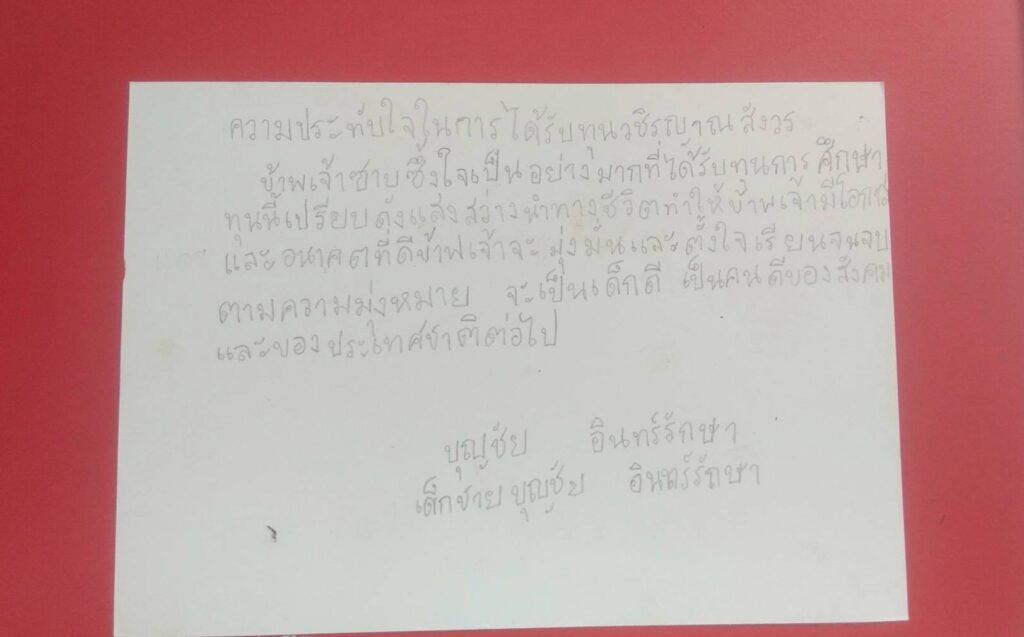 ความประทับใจในการได้รับทุนวชิรญาณสังวร
ข้าพเจ้าซาบซึ้งใจเป็นอย่างมากที่ได้รับทุนการศึกษา
ทุนนี้เปรียบดังแสงสว่างนำทางชีวิตทำให้ข้าพเจ้ามีโอกาส
และอนาคตที่ดีข้าพเจ้าจะมุ่งมั่นและตั้งใจเรียนจนจบ
ตามความมุ่งหมาย จะเป็นเด็กดี เป็นคนดีของสังคม
และของประเทศชาติต่อไป
บุญชัย อินทร์รักษา
เด็กชายบุญชัย อินทร์รักษา